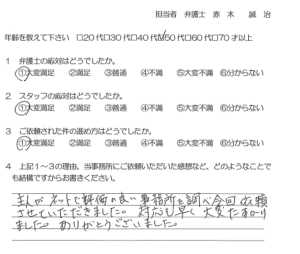 担当者 弁護士 赤 木 誠 治
年齢を教えて下さい □20代□30代□40代☑50代□60代□70才以上
1 弁護士の応対はどうでしたか。
①大変満足 ②満足 ③普通 ④不満 ⑤大変不満 ⑥分からない
2 スタッフの応対はどうでしたか。
①大変満足 ②満足 ③普通 ④不満 ⑤大変不満 ⑥分からない
3 ご依頼された件の進め方はどうでしたか。
①大変満足 ②満足 ③普通 ④不満 ⑤大変不満 ⑥分からない
4 上記1~3の理由、当事務所にご依頼いただいた感想など、どのようなことで
も結構ですからお書きください。
主人がネットで評価の良い事務所を調べ今回依頼
させていただきました。対応も早く大変たすかり
ました。ありがとうございました。